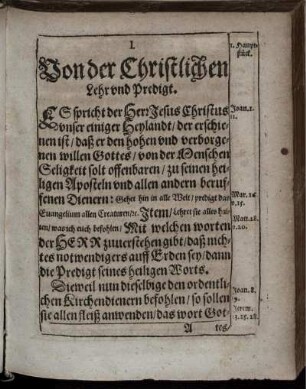 I.
1. Haupt-
stück.
Von der Christlichen
Lehr vnd Predigt.
ES spricht der Herr Jesus Christus
vnser einiger Heylandt / der erschie-
nen ist / daß er den hohen vnd verborge-
nen willen Gottes / von der Menschen
Seligkeit solt offenbaren / zu seinen hei-
ligen Aposteln vnd allen andern beruf-
fenen Dienern: Gehet hin in alle Welt / predigt das
Euangelium allen Creaturen / ꝛc. Item / Lehret sie alles hal-
ten / was ich euch befohlen / Mit welchen worten
der HERR zuuerstehen gibt / daß nich-
tes notwendigers auff Erden sey / dann
die Predigt seines heiligen Worts.
Dieweil nun dieselbige den ordentli-
chen Kirchendienern befohlen / so sollen
sie allen fleiß anwenden / das wort Got-
A
tes
Joan. 1.
Mar. 16
Joan. 8.